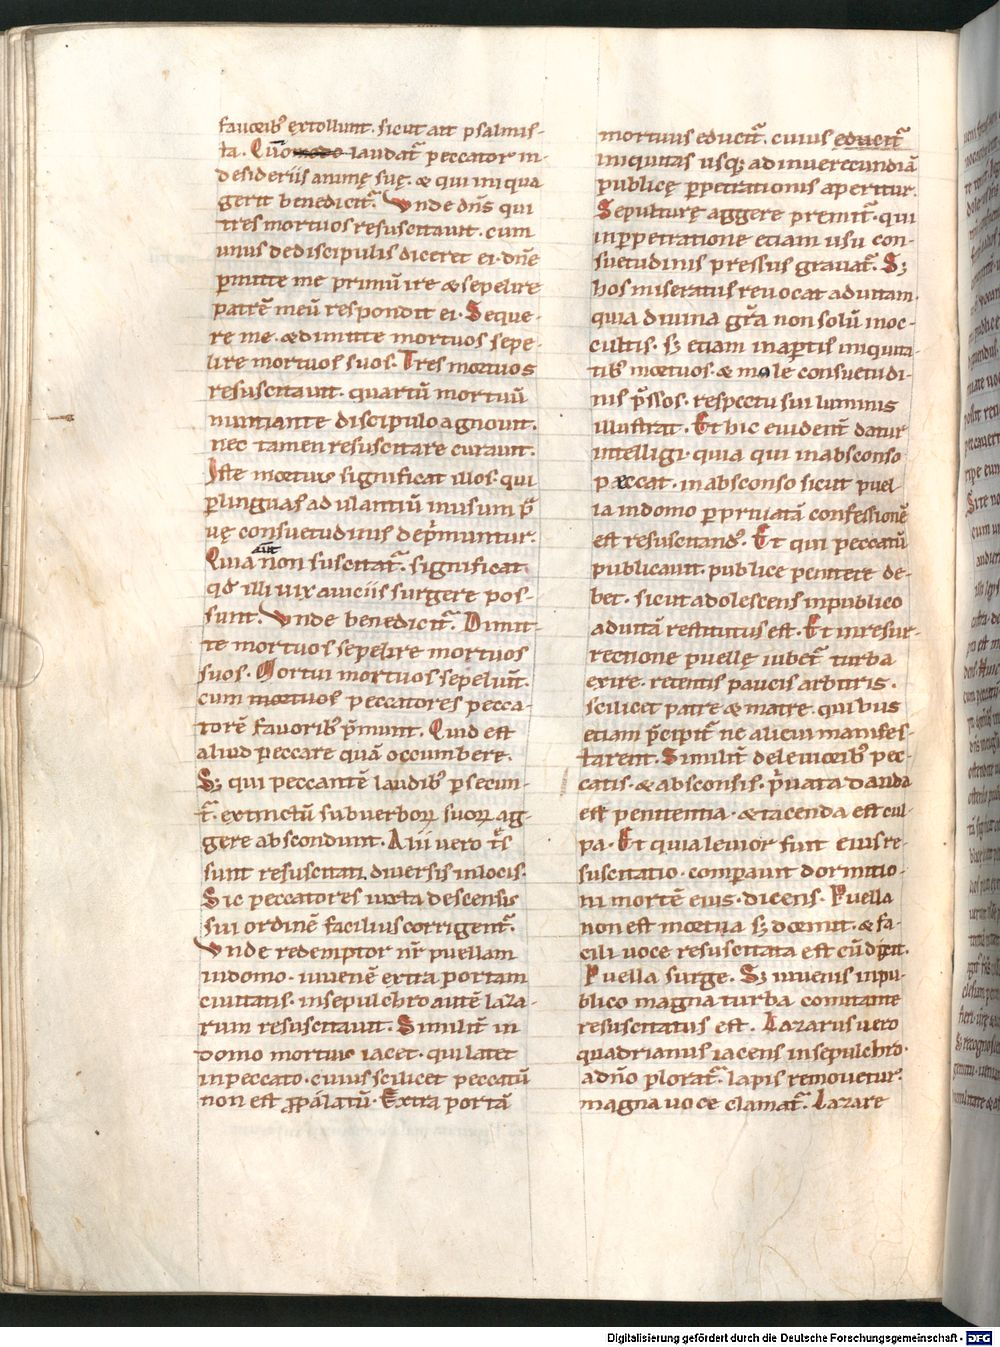 faucorib; extollunt. sicut ait psalmis-
ta. Quō laudat̄ peccator in
desideriis animę suę. & qui iniqua
gerit benedicit̄. Vnde dn̄s qui
tres mortuos resuscitauit. cum
unus dediscipulis diceret ei. dn̄e
p̄mitte me primū ire & sepelire
patrē meū respondit ei. Seque-
re me. & dimitte mortuos sepe-
lire mortuos suos. Tres mortuos
resuscitauit. quartū mortuū
nuntiante discipulo agnouit.
nec tamen resuscitare curauit.
Iste mortuus significat illos. qui
p̄linguas adulantiū inusum p̄
uę consuetudinis dep̄muntur.
Quia aut̄ non suscitat̄. significat
qd̄ illi uix auiciis surgere pos-
sunt. Vnde benedicit̄. Dimit-
te mortuos sepelire mortuos
suos. Mortui mortuos sepeliunt̄.
cum mortuos peccatores pecca-
torē fauorib; p̄munt. Quid est
aliud peccare quā occumbere.
S; qui peccantē laudib; p̄secun-
t̄. extinctū subuerborꝝ suorꝝ ag-
gere abscondunt. Alii uero tr̄s
sunt resuscitati diuersis inlocis.
Sic peccatores iuxta descensis
sui ordinē facilius corrigent̄.
Vnde redemptor nr̄ puellam
indomo. iuuenē extra portam
ciuitatis. insepulchro autē laza-
rum resuscitauit. Similit̄ in
domo mortuus iacet. qui latet
inpeccato. cuius scilicet peccatū
non est ꝓpalatū. Extra portā
mortuus educit̄. cuius educit̄
iniquitas usq; adinuerecundiā
publicę p̄petrationis aperitur.
Sepulturę aggere premit̄. qui
inp̄petratione etiam usu con-
suetudinis pressus grauat̄. S;
hos miseratus reuocat aduitam.
quia diuina gr̄a non solū inoc-
cultis. s; etiam inap̄tis iniquita-
tib; mortuos. & mole consuetudi-
nis p̄ssos. respectu sui luminis
illustrat. Et hic euident̄ datur
intelligi. quia qui inabsconso
peccat. inabsconso sicut puel
la indomo p̄priuatā confessionē
est resuscitand;. Et qui peccatū
publicauit. publice penitere de-
bet. sicut adolescens inpublico
aduitā restitutus est. Et inresur-
rectione puellę iubet̄ turba
exire. retentis paucis arbitris.
scilicet patre & matre. quibus
etiam p̄cipit̄ ne alicui manifes-
tarent. Similit̄ deleuiorib; pec-
catis. & absconsis. p̄uata danda
est penitentia. & tacenda est cul-
pa. Et quia leuior fuit eius re-
suscitatio. comparauit dormitio-
ni mortē eius. dicens. Puella
non est mortua s; dormit. & fa-
cili uoce resuscitata est cū dic̄it.
Puella surge. S; iuuenis inpu-
blico magna turba comitante
resuscitatus est. Lazarus uero
quadrianus iacens insepulchro.
adn̄o plorat̄. lapis remouetur.
magna uoce clamat̄. Lazare
Digitalisierung gefördert durch die Deutsche Forschungsgemeinschaft - DFG